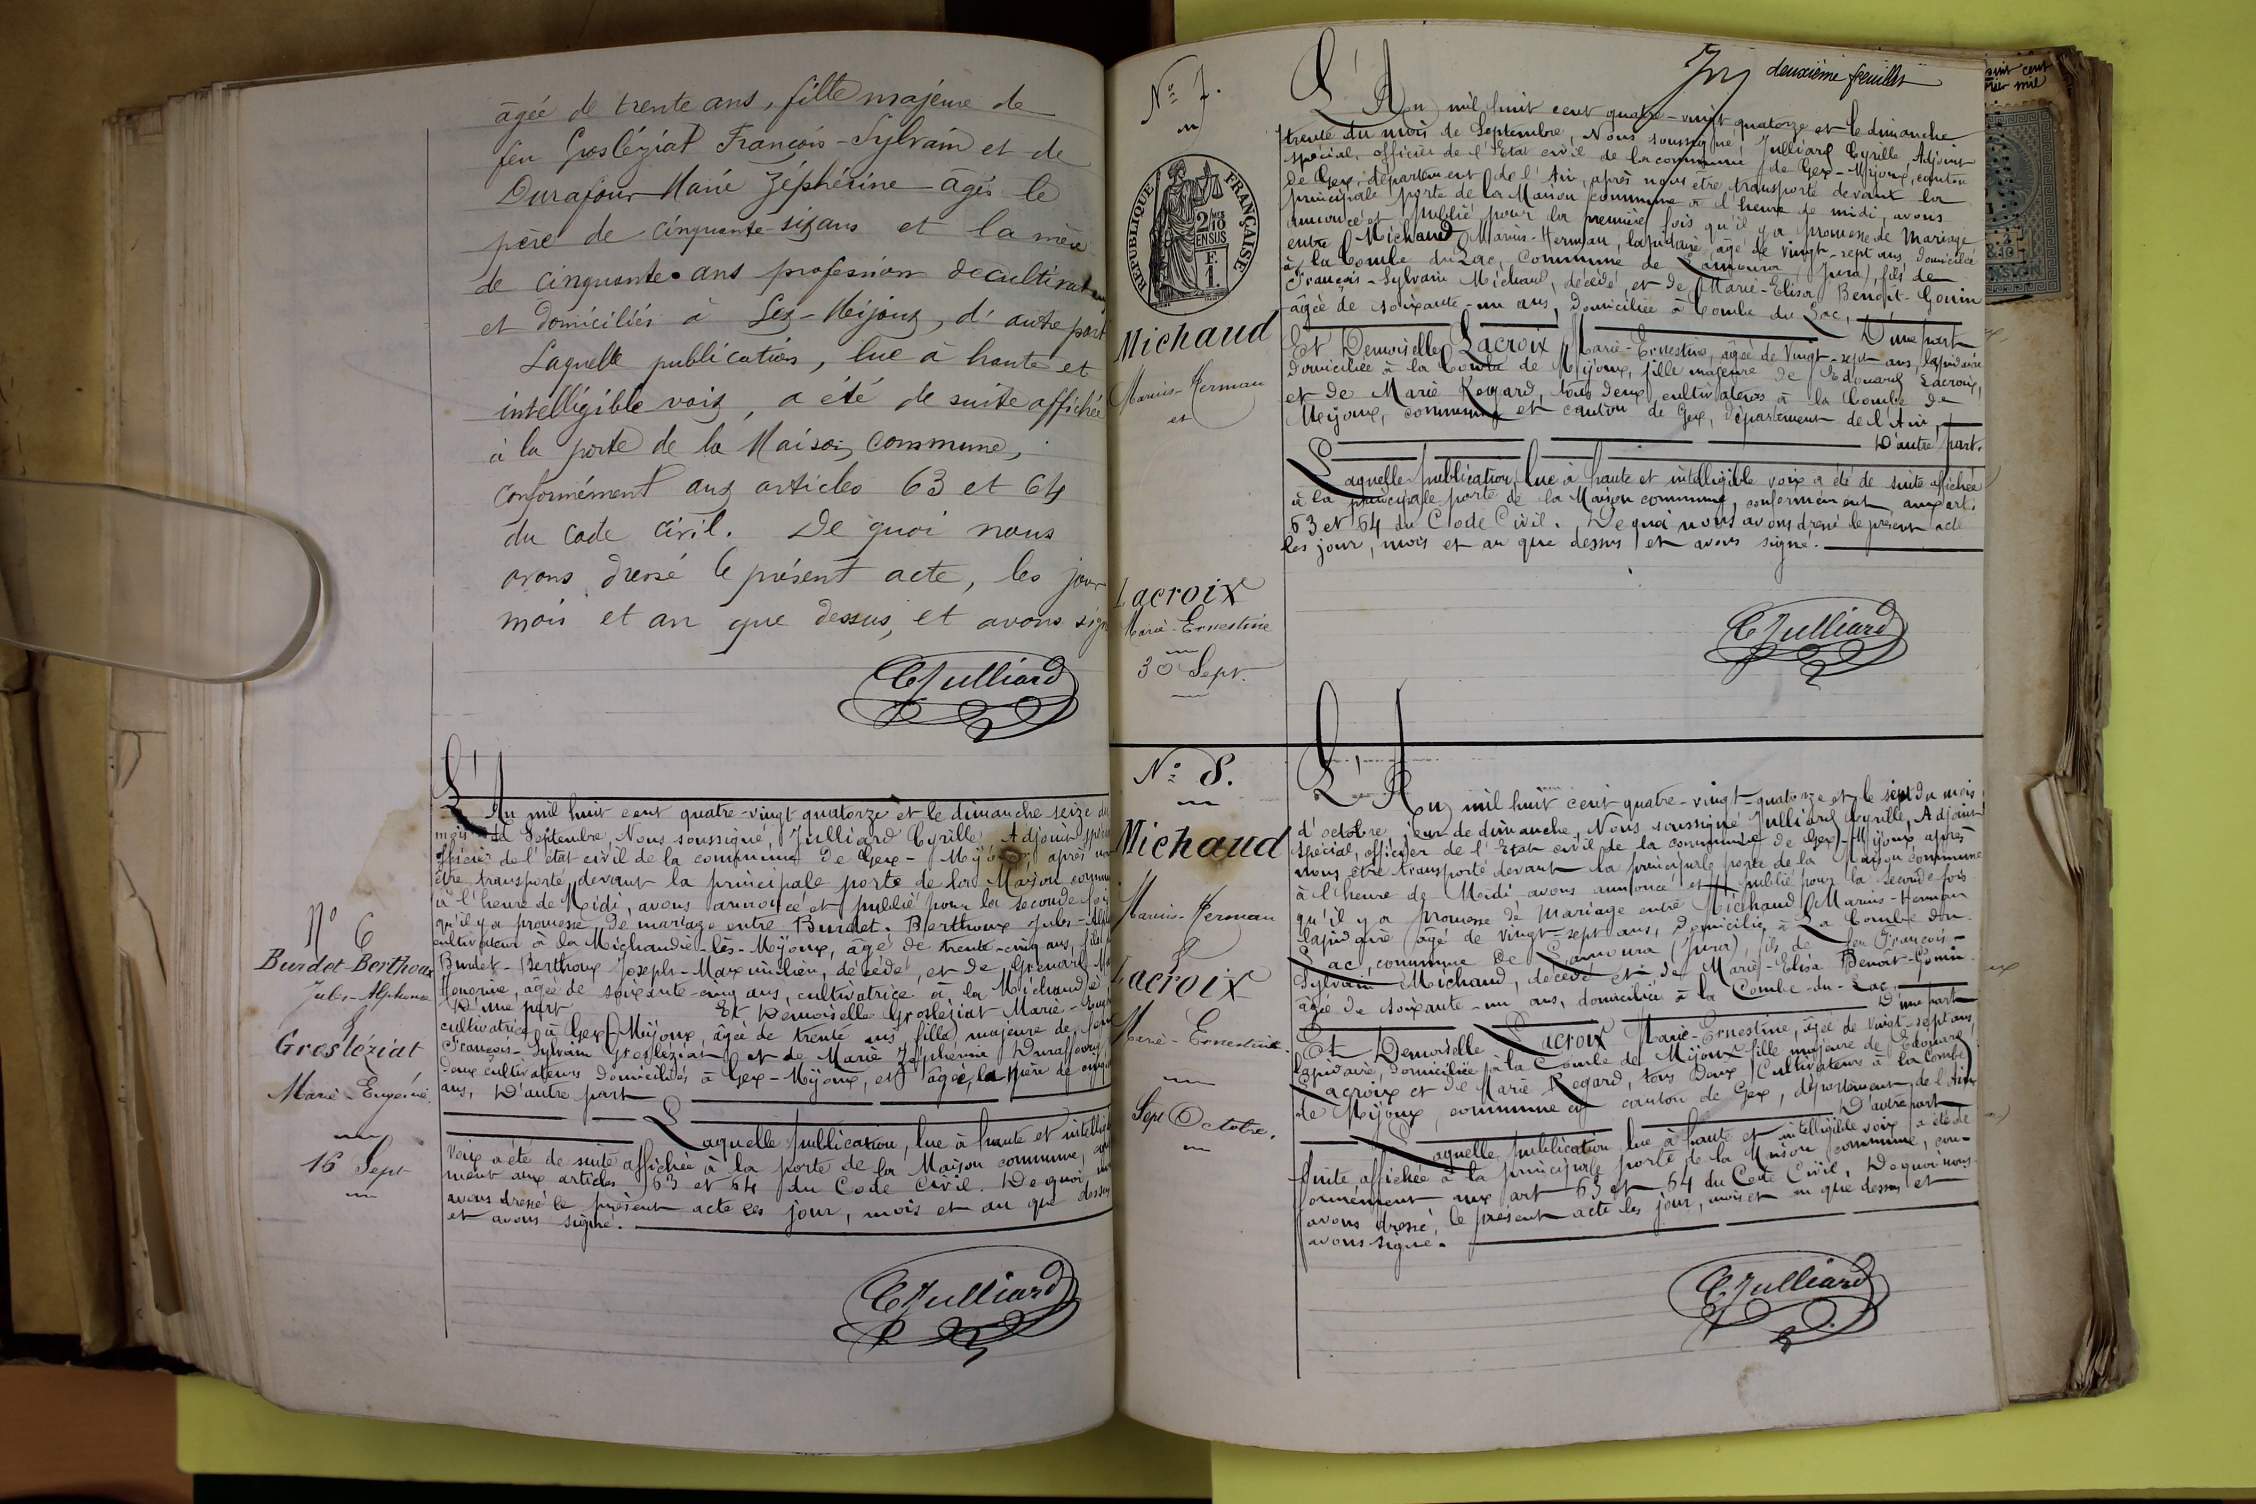 âgée de trente ans, fille majeure de
feu Grosléziat François-Sylvain et de
Durafour Marie Zéphérine âgés le
père de cinquante-six ans et la mère
de cinquante ans profession de cultivateurs
et domiciliés à Gex-Mijoux, d'autre part
Laquelle publication, lue à haute et
intelligible voix, a été de suite affichée
à la porte de la Maison commune,
conformément aux articles 63 et 64
du code civil. De quoi nous
avons dressé le présent acte, les jour
mois et an que dessus, et avons sign
CJulliard
N° 6
Burdet-Berthoux
Jules-Alphonse
&
Grosléziat
Marie Eugénie
16 Sept
L'An mil huit cent quatre-vingt quatorze et le dimanche seize du
mois de Septembre, Nous soussigné, Julliard Cyrille, Adjoint spécial
officier de l'état civil de la commune de Gex-Mijoux, après nous
être transporté devant la principale porte de la Maison commune
à l'heure de Midi, avons annoncé et publié pour la seconde fois
qu'il y a promesse de mariage entre Burdet-Berthoux Jules-Alph
cultivateur à la Michaudie-lès-Mijoux, âgé de trente-cinq ans, fils
Burdet-Berthoux Joseph-Maximilien, décédé, et de Grenard
Honorine, âgée de soixante-cinq ans, cultivatrice à la Michaudie
D'une part Et Demoiselle Grosléziat Marie-Eug
cultivatrice, à Gex-Mijoux, âgée de trente ans fille majeure de feu
François-Sylvain Grosléziat et de Marie Zéphérine Duraffourg
deux cultivateurs domiciliés à Gex-Mijoux, et âgée, la mère de
ans, D'autre part
Laquelle publication, lue à haute et intelligib
voix a été de suite affichée à la porte de la Maison commune,
ment aux articles 63 et 64 du Code Civil. De quoi
avons dressé le présent acte les jour, mois et an que dessus
et avons signé.
CJulliard
deuxième feuillet
N° 7.
RÉPUBLIQUE FRANÇAISE
2/10 EN SUS
F. 1.
Michaud
Marius-Herman
et
Lacroix
Marie-Ernestine
30 Sept.
L'An mil huit cent quatre-vingt quatorze et le dimanche
trente du mois de Septembre, Nous soussigné Julliard Cyrille, Adjoint
spécial, officier de l'Etat civil de la commune de Gex-Mijoux, canton
de Gex, département de l'Ain, après nous être transporté devant la
principale porte de la Maison commune à l'heure de midi, avons
annoncé et publié pour la première fois qu'il y a promesse de Mariage
entre Michaud Marius-Herman, lapidaire, âgé de vingt-sept ans, domicilié
à la Combe du Lac, commune de Lamoura (Jura), fils de
François-Sylvain Michaud, décédé, et de Marie-Elisa Benoit-Gonin
âgée de soixante-un ans, domiciliée à Combe du Lac, D'une part
Et Demoiselle Lacroix Marie-Ernestine, âgée de Vingt-sept ans, lapidaire
domiciliée à la Combe de Mijoux, fille majeure de Edouard Lacroix,
et de Marie Regard, tous deux cultivateurs à la Combe de
Mijoux, commune et canton de Gex, département de l'Ain,
D'autre part.
Laquelle publication lue à haute et intelligible voix a été de suite affichée
à la principale porte de la Maison commune, conformément aux art.
63 et 64 du Code Civil. De quoi nous avons dressé le présent acte
les jour, mois et an que dessus et avons signé.
CJulliard
N° 8.
Michaud
Marius-Herman
&
Lacroix
Marie-Ernestine
Sept Octobre.
L'An mil huit cent quatre-vingt-quatorze et le sept du mois
d'octobre, jour de dimanche, Nous soussigné Julliard Cyrille, Adjoint
spécial, officier de l'Etat civil de la commune de Gex-Mijoux après
nous être transporté devant la principale porte de la Maison commune
à l'heure de Midi avons annoncé et publié pour la seconde fois
qu'il y a promesse de mariage entre Michaud Marius-Herman
lapidaire âgé de vingt-sept ans, domicilié à La Combe du
Lac, commune de Lamoura (Jura) fils de feu François-
Sylvain Michaud, décédé et de Marie-Elisa Benoit-Gonin
âgée de soixante-un ans, domiciliée à la Combe-du-Lac,
D'une part
Et Demoiselle Lacroix Marie-Ernestine, âgée de vingt-sept ans,
lapidaire, domiciliée à la Combe de Mijoux fille majeure de Edouard
Lacroix et de Marie Regard, tous deux Cultivateurs à la Combe
de Mijoux, commune et canton de Gex, département de l'Ain
D'autre part
Laquelle publication lue à haute et intelligible voix a été de
suite affichée à la principale porte de la Maison commune, con-
formément aux art 63 et 64 du Code Civil, De quoi nous
avons dressé le présent acte les jour, mois et an que dessus et
avons signé.
CJulliard